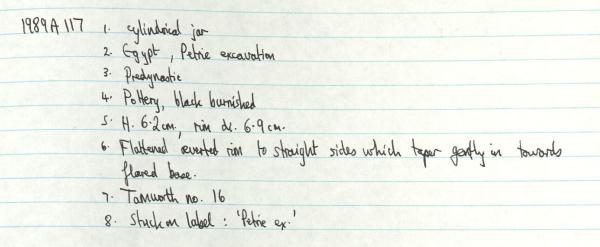 1989A117 1. cylindrical jar
2. Egypt, Petrie excavation
3. Predynastic
4. Pottery, black burnished
5. H. 6.2cm, rim d. 6.9cm.
6. Flattened everted rim to straight sides which taper gently in towards
flared base.
7. Tamworth no. 16
8. Stuck on label : 'Petrie ex.'